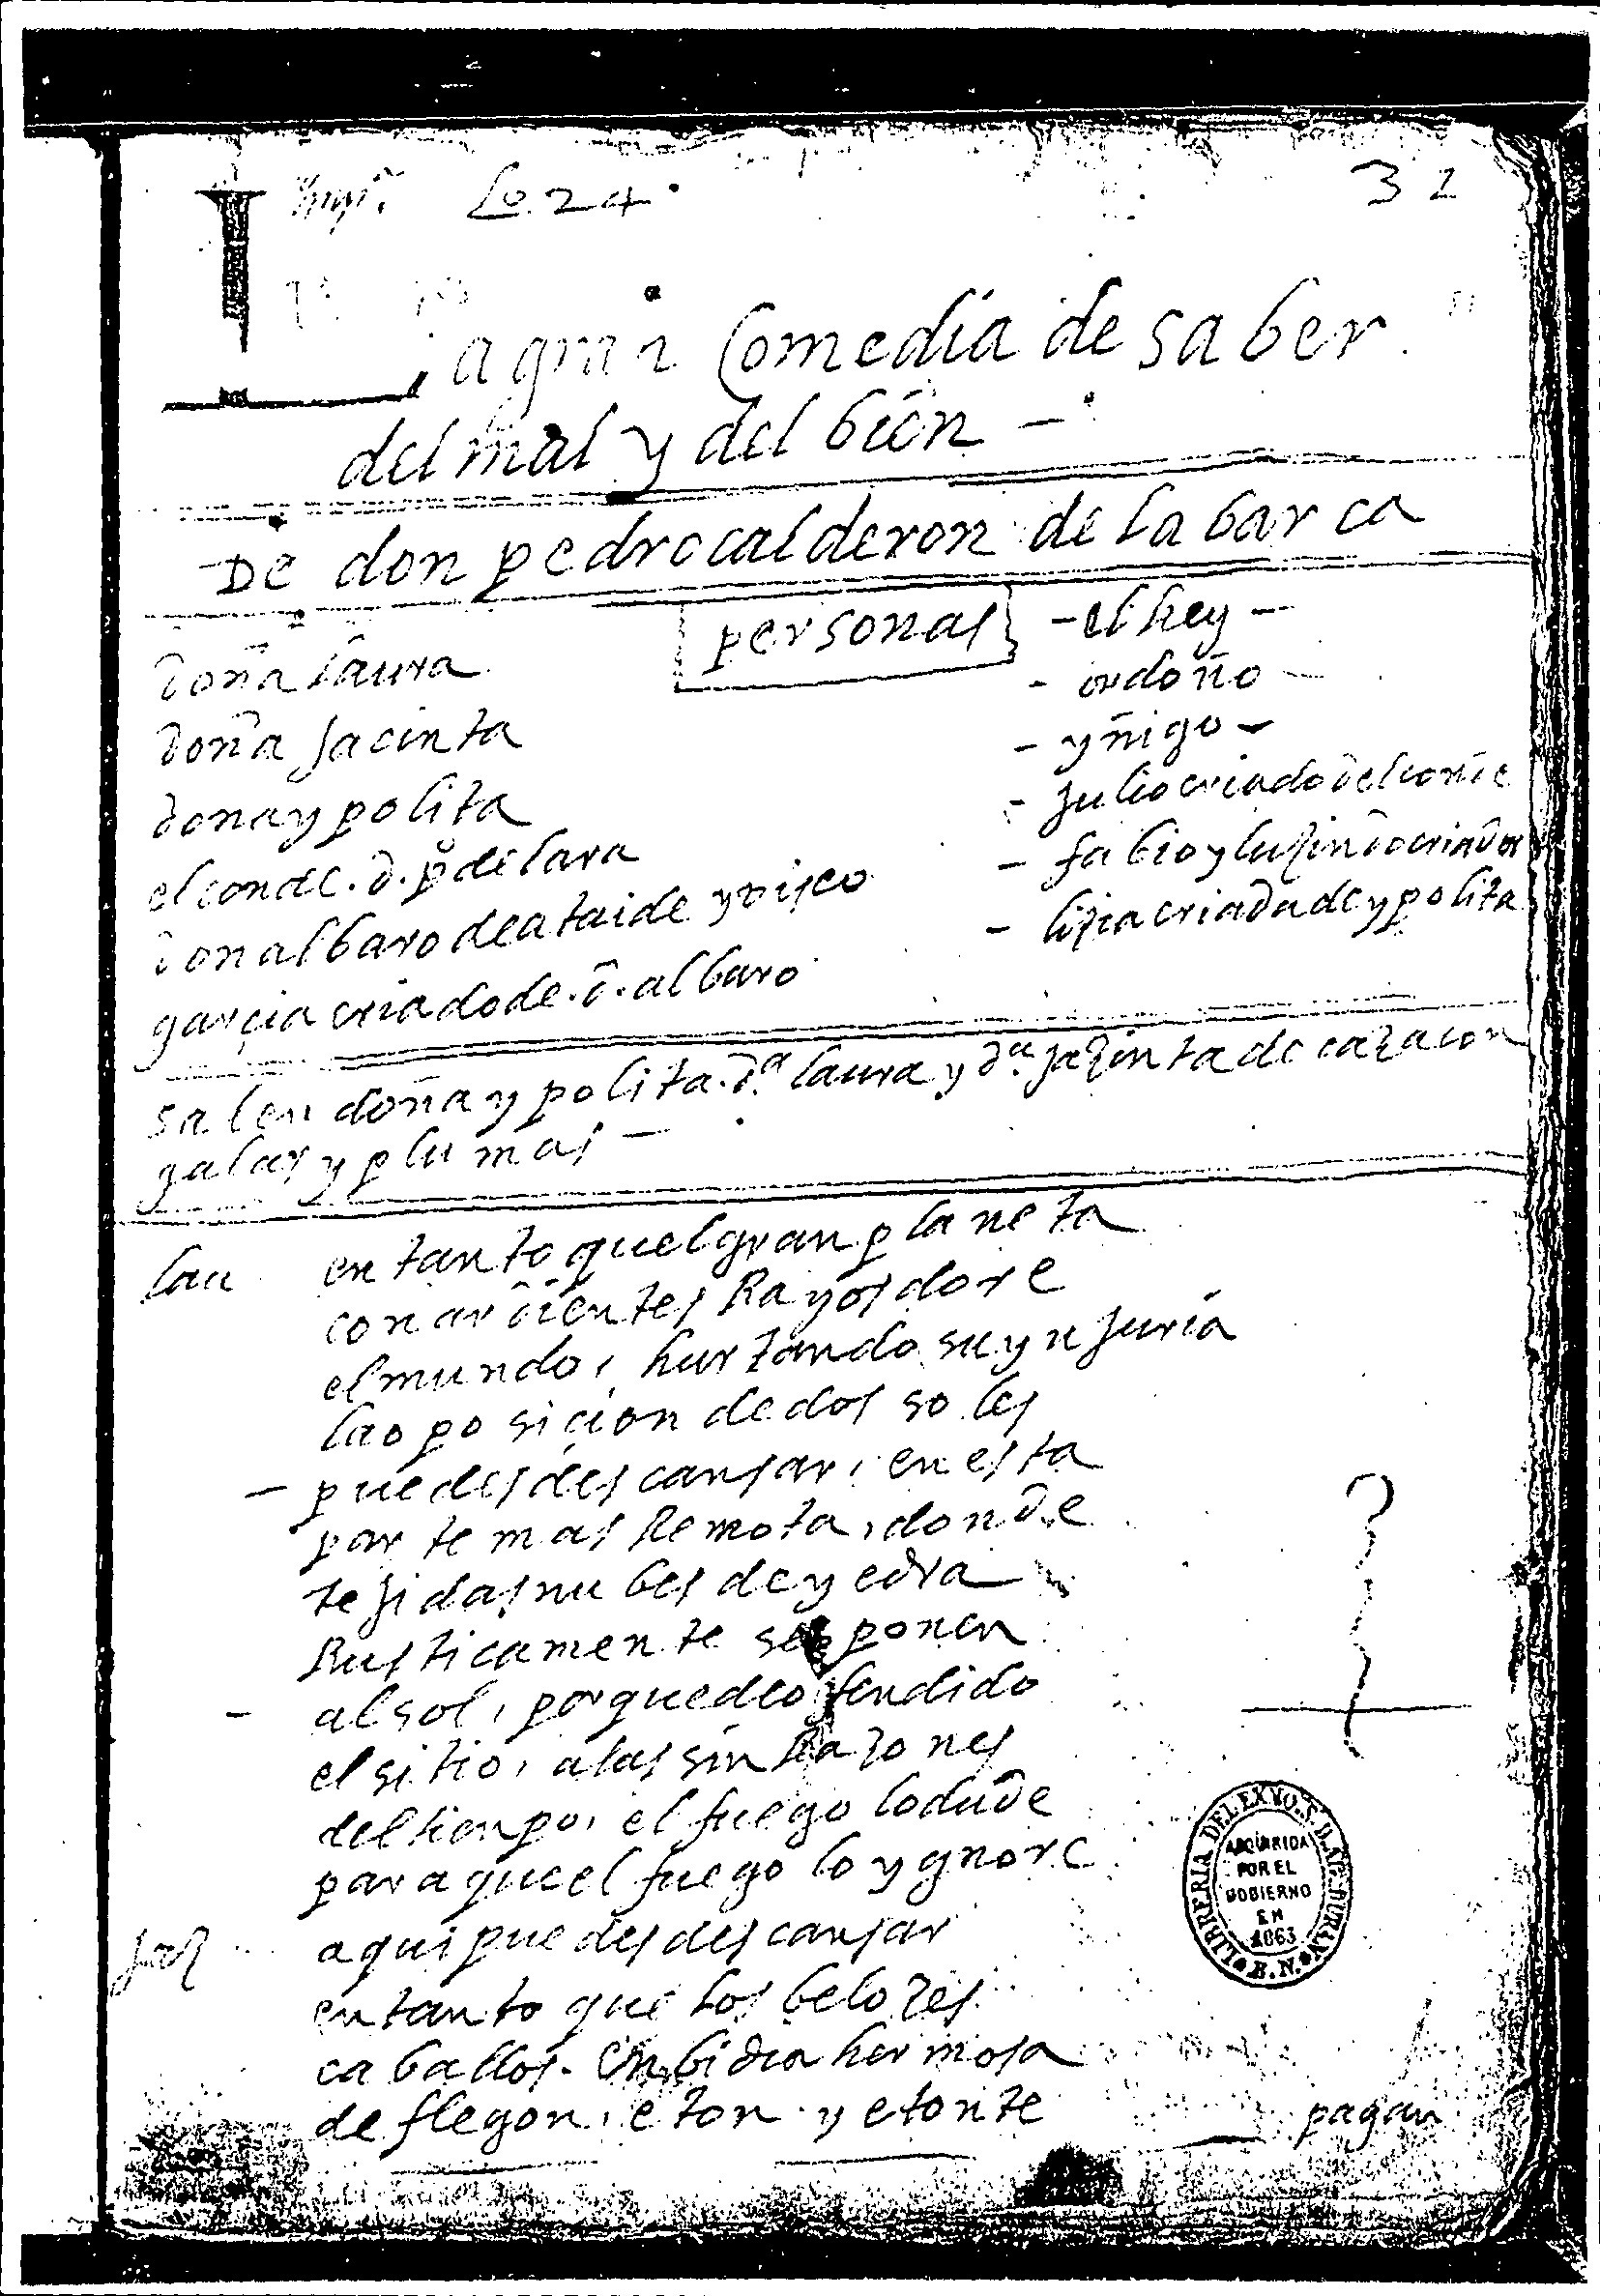 Lo. 24
32
La gran Comedia de saber
del mal y del bien —
De don pedro calderon de la barca
personas
doña laura
doña jacinta
dona ypolita
el conde . d . po de lara
don albaro de ataide y visco
garçia criado de . d . albaro
- el Rey -
- ordoño
- yñigo -
- julio criado del conde
- fabio y luzindo criados
- lizia criada de ypolita
salen doña ypolita . da laura y da jazinta de caza con
galas y plumas —
lau en tanto quel gran planeta
con ardientes Rayos dore
el mundo, hurtando su ynjuria
la oposiçion de dos soles
— puedes descansar, en esta
parte mas Remota, donde
tejidas nubes de yedra
Rusticamente se oponen
- al sol, porque defendido
el sitio, a las sin Razones
del tienpo, el fuego lo dude
para que el fuego lo ygnore
jaz aqui puedes descansar
en tanto que los belozes
caballos. enbidia hermosa
de flegon, eton y etonte
pagan
LIBRERIA DEL EXMO. S. D. AG. DURAN
ADQUIRIDA
POR EL
GOBIERNO
EN
1863
B.N.